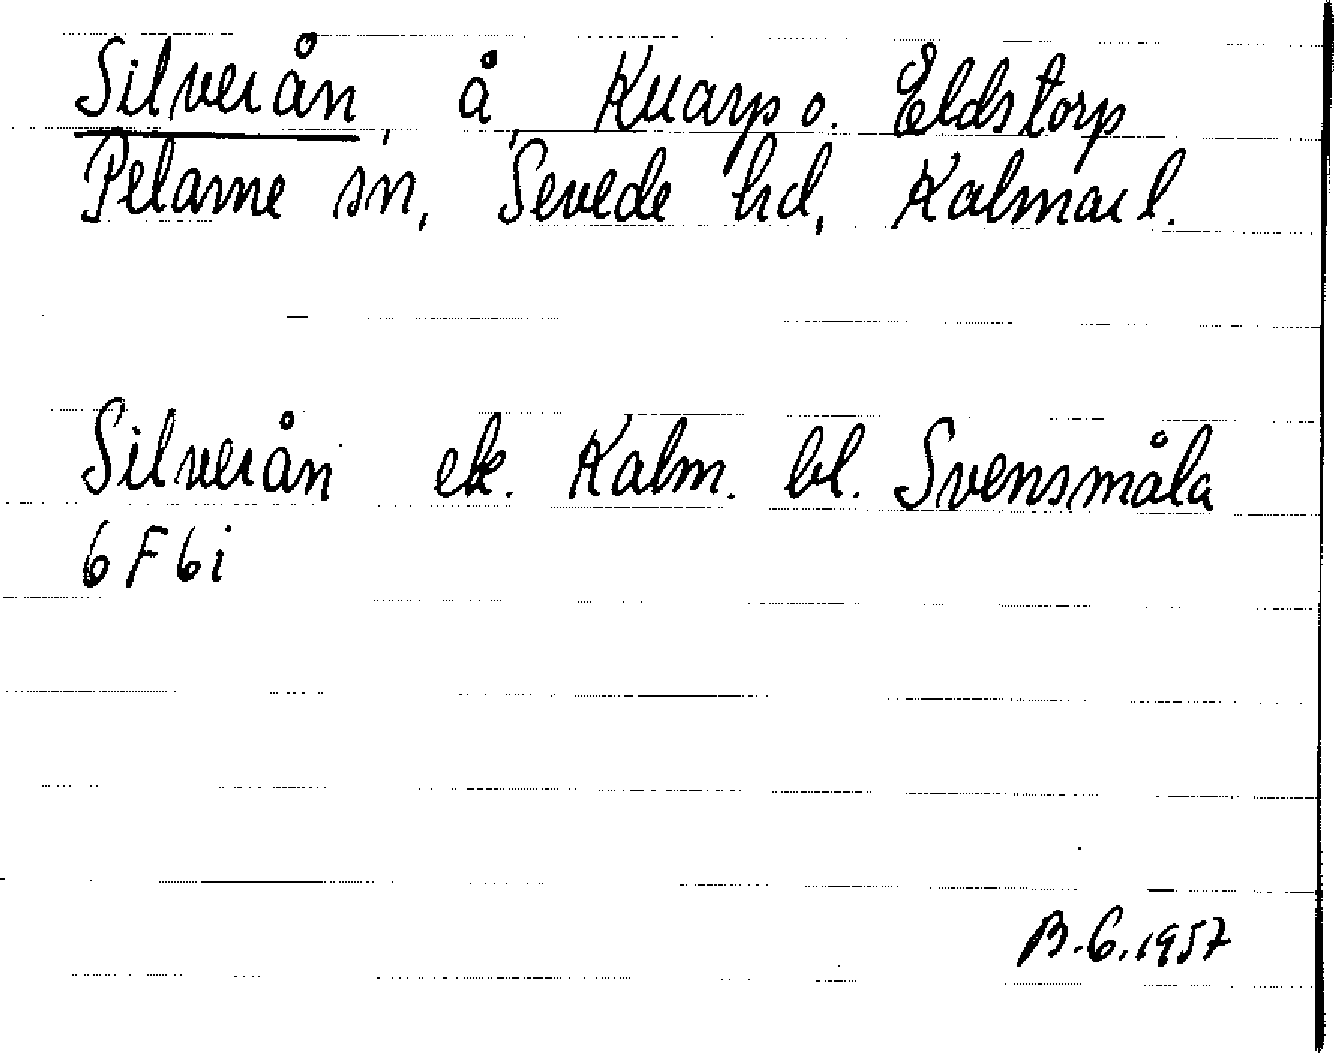 Silverån, å, Kuarp o. Eldstorp
Pelarne sn, Sevede hd, Kalmar l.
Silverån ek. Kalm. bl. Svensmåla
6 F 6 i
B. G. 1957